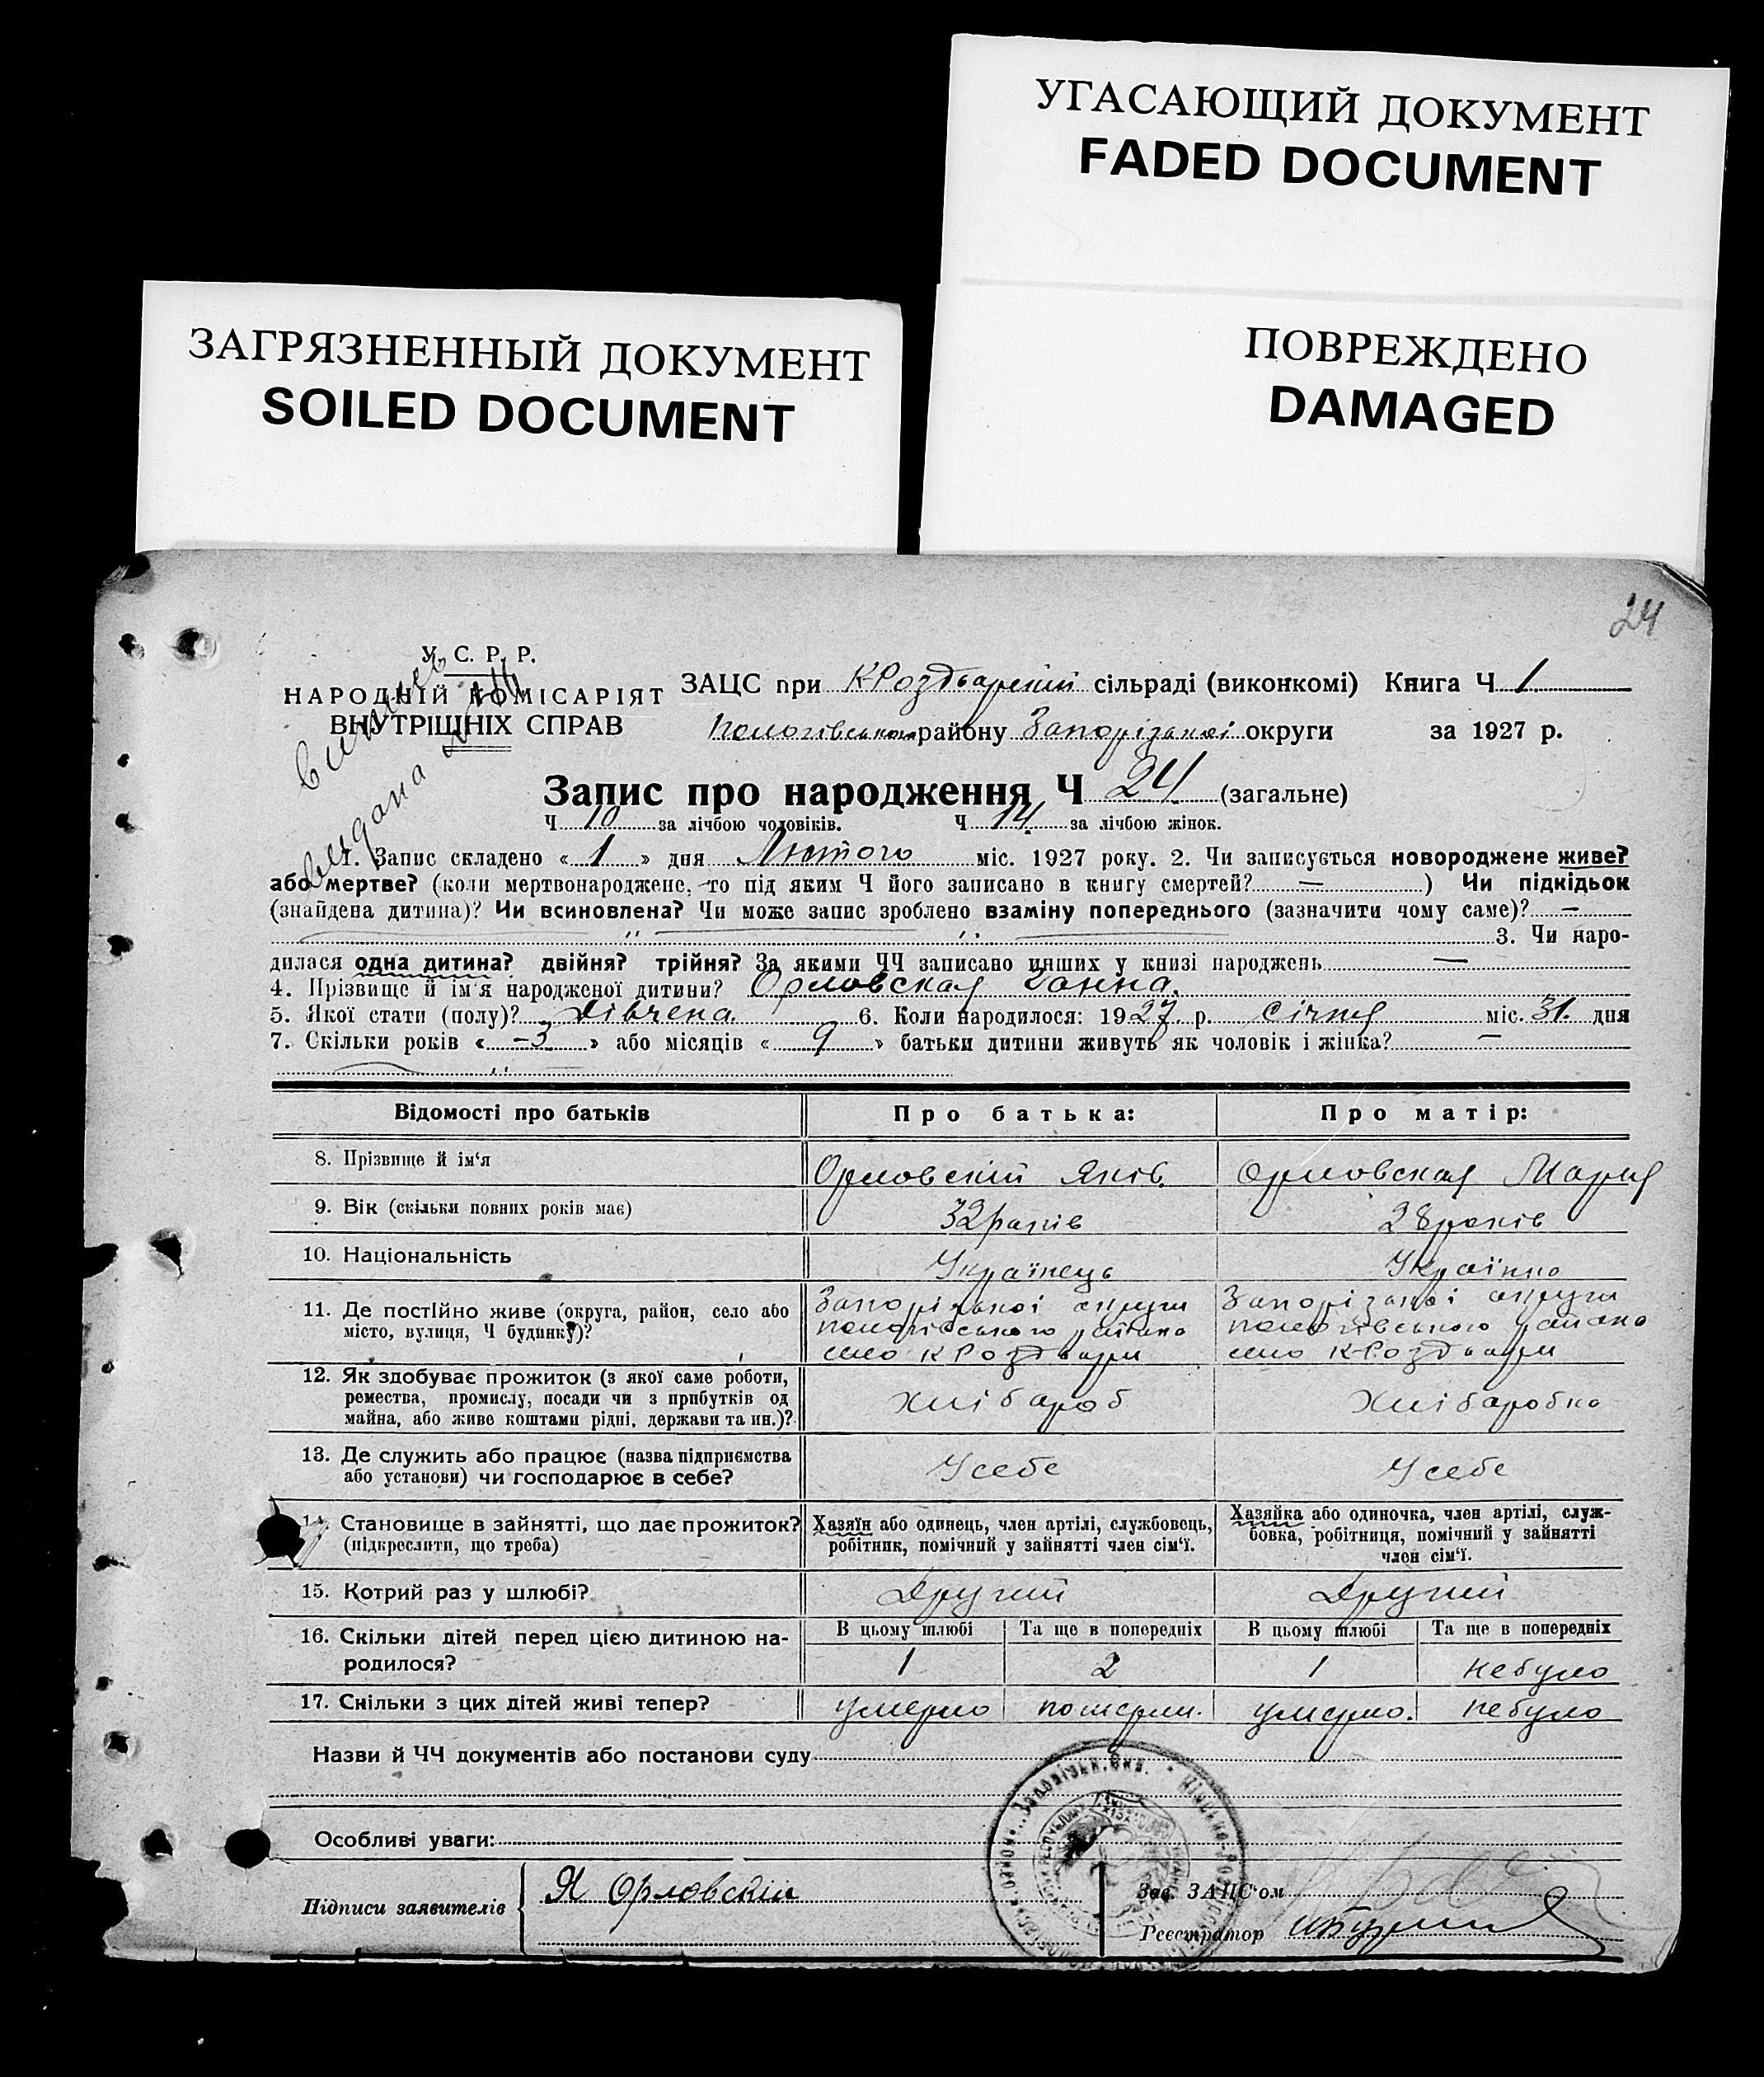 УГАСАЮЩИЙ ДОКУМЕНТ
FADED DOCUMENT
ЗАГРЯЗНЕННЫЙ ДОКУМЕНТ
SOILED DOCUMENT
ПОВРЕЖДЕНО
DAMAGED
24
У. С. Р. Р.
НАРОДНІЙ КОМІСАРІЯТ
ВНУТРІШНІХ СПРАВ
ЗАЦС при сільраді (виконкомі) Книга Ч 1
Пологівського району Запорізької округи за 1927 р.
видана
Запис про народження Ч 24 (загальне)
Ч 10 за лічбою чоловіків. Ч 14 за лічбою жінок.
1. Запис складено « 1 » дня Лютого міс. 1927 року. 2. Чи записується новороджене живе?
або мертве? (коли мертвонароджене, то під яким Ч його записано в книгу смертей? — ) Чи підкідьок
(знайдена дитина)? Чи всиновлена? Чи може запис зроблено взаміну попереднього (зазначити чому саме)? —
3. Чи наро-
дилася одна дитина? двійня? трійня? За якими ЧЧ записано инших у книзі народжень —
4. Прізвище й ім'я народженої дитини? Орловская Ганна.
5. Якої стати (полу)? Дівчена. 6. Коли народилося: 1927 р. січня міс. 31. дня
7. Скільки років « -3 » або місяців « 9 » батьки дитини живуть як чоловік і жінка? —
Відомості про батьків Про батька: Про матір:
8. Прізвище й ім'я Орловский Яків. Орловская Мария
9. Вік (скільки повних років має) 32 років 28 років
10. Національність Українець Українка
11. Де постійно живе (округа, район, село або Запорізької округи Запорізької округи
місто, вулиця, Ч будинку)? пологівського району пологівського району
село К Роздори село К-Роздори
12. Як здобуває прожиток (з якої саме роботи,
ремества, промислу, посади чи з прибутків од Хлібароб Хлібаробка
майна, або живе коштами рідні, держави та ин.)?
13. Де служить або працює (назва підприємства Усебе Усебе
або установи) чи господарює в себе?
14. Становище в зайнятті, що дає прожиток? Хазяїн або одинець, член артілі, службовець, Хазяйка або одиночка, член артілі, служ-
(підкреслити, що треба) робітник, помічний у зайнятті член сім'ї. бовка, робітниця, помічний у зайнятті
член сім'ї.
15. Котрий раз у шлюбі? Другий Другий
16. Скільки дітей перед цією дитиною на- В цьому шлюбі Та ще в попередніх В цьому шлюбі Та ще в попередніх
родилося? 1 2 1 небуло
17. Скільки з цих дітей живі тепер? умерло померли. умерло. небуло
Назви й ЧЧ документів або постанови суду
Особливі уваги:
Підписи заявителів Я Орловский
Зав. ЗАЦС'ом
Реєстратор